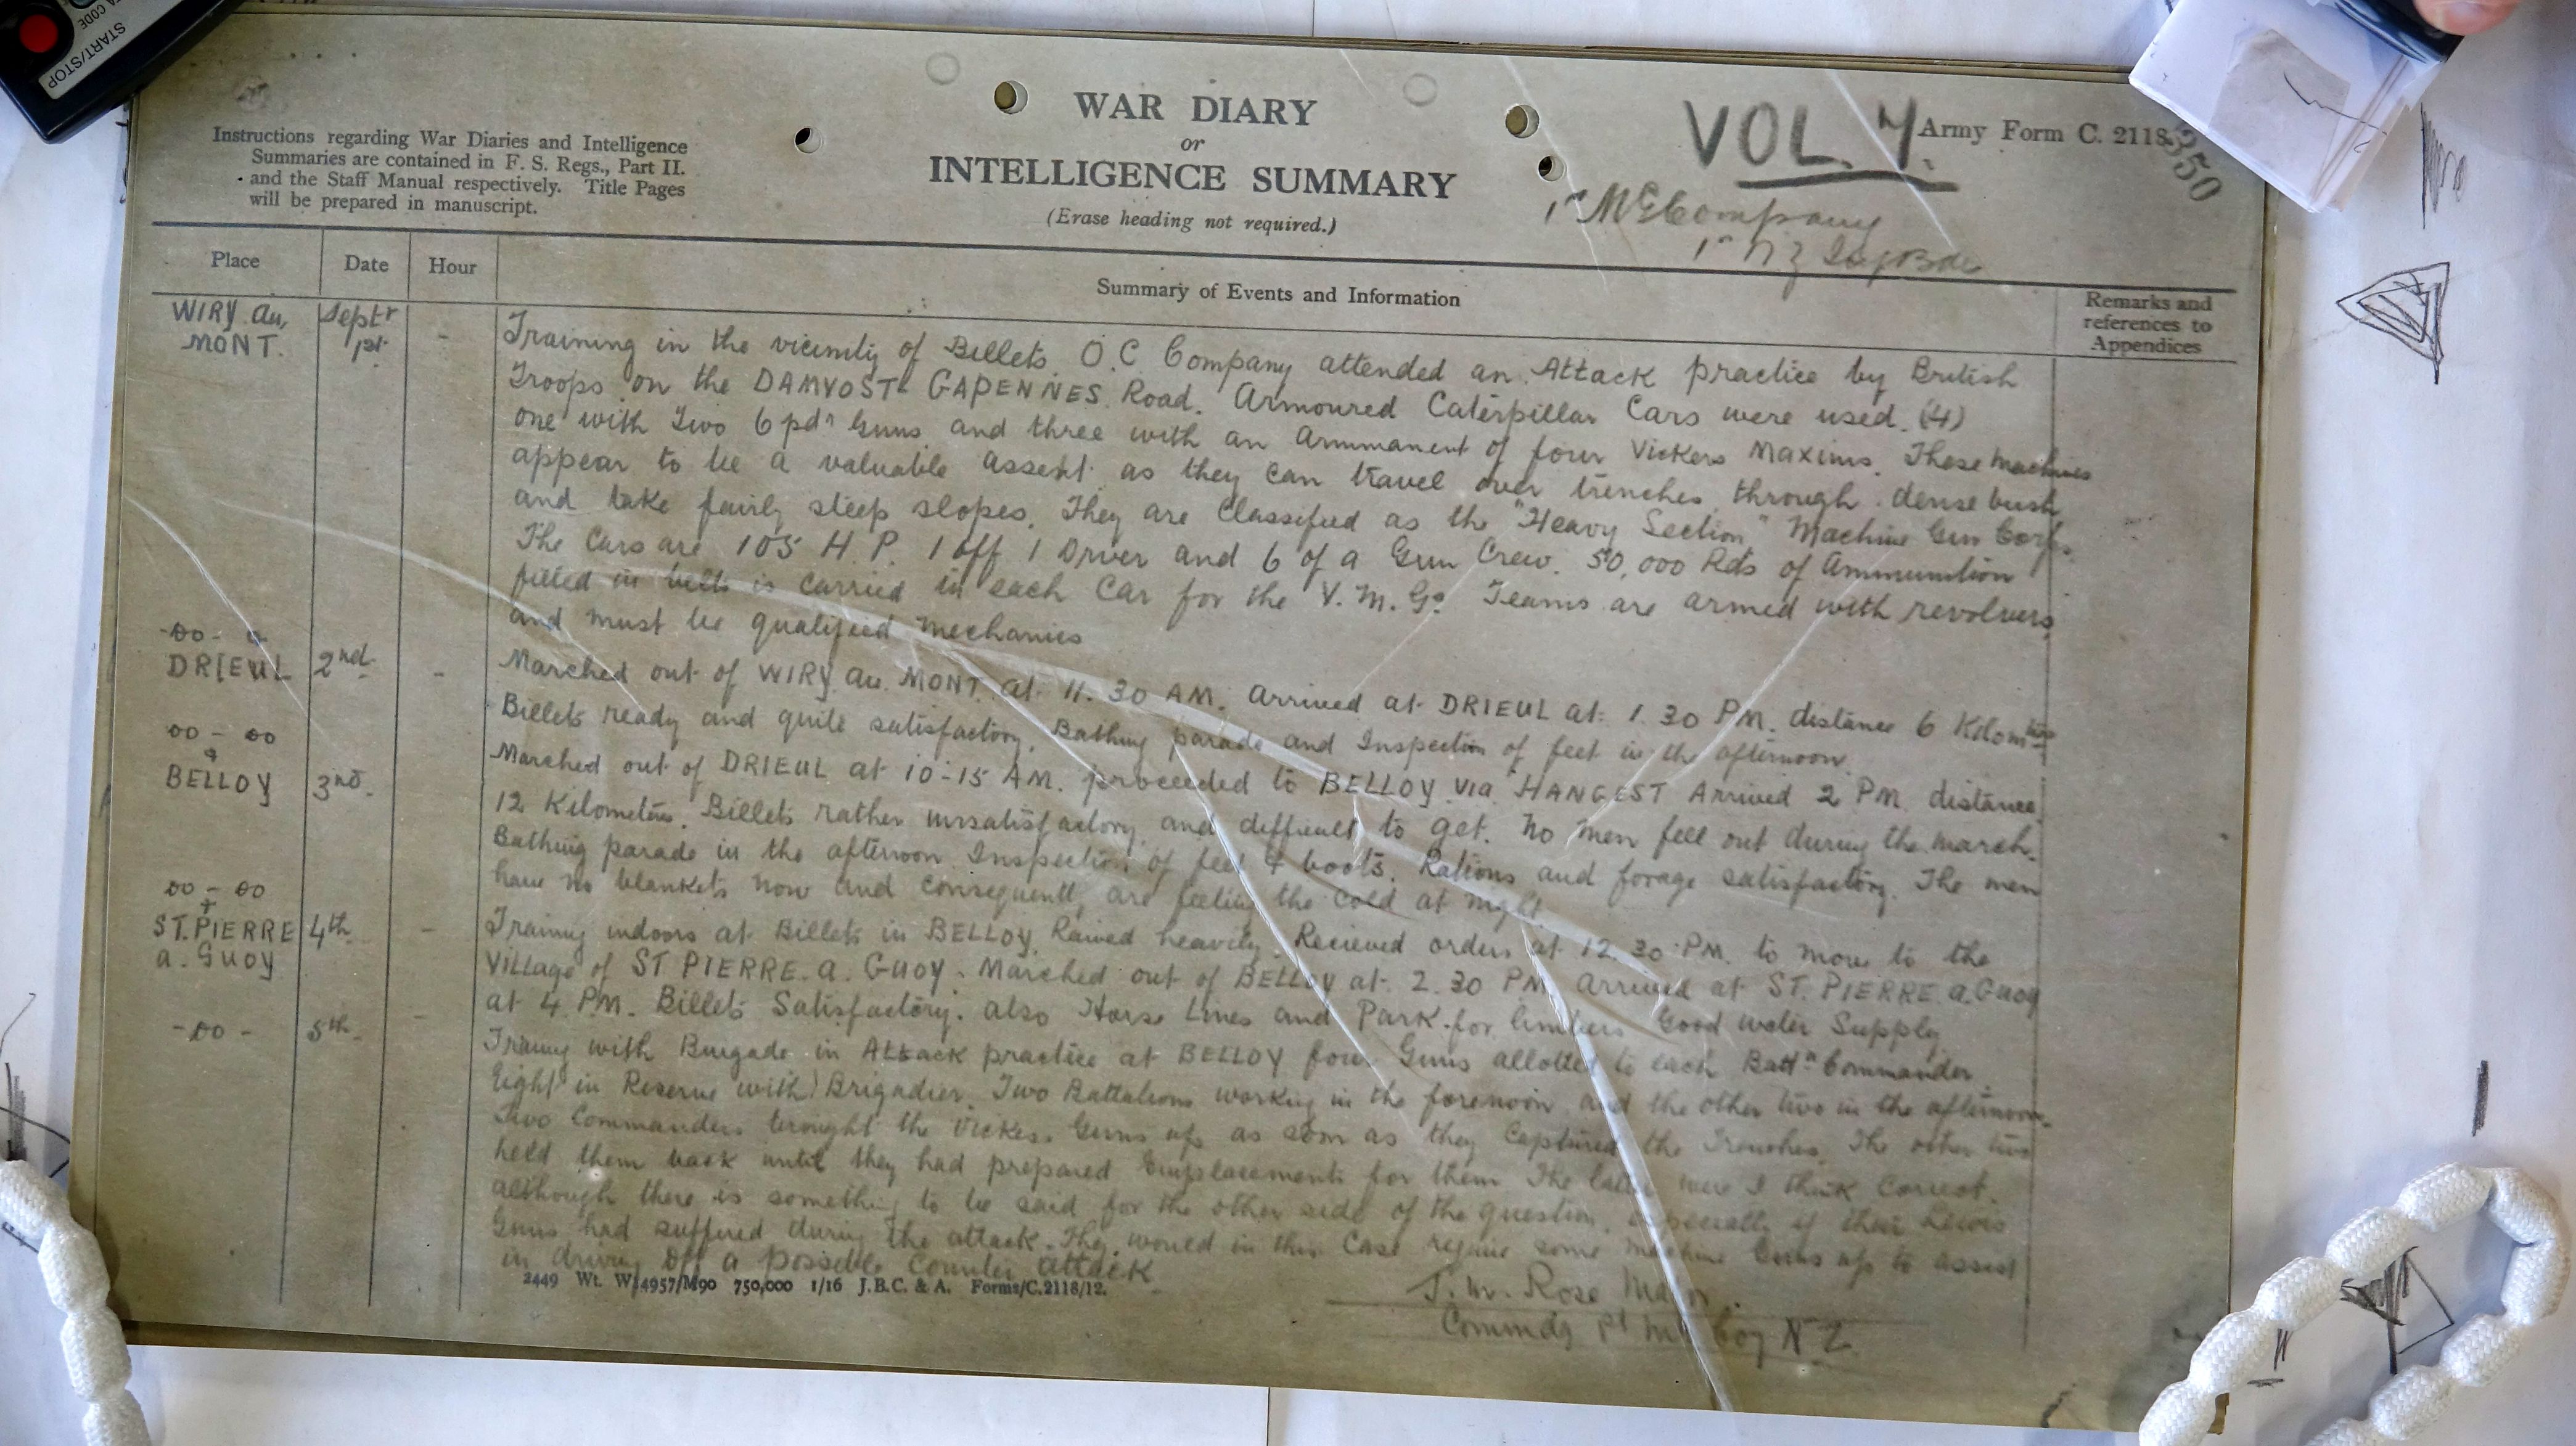 START/STOP
WAR DIARY
or
INTELLIGENCE SUMMARY
(Erase heading not required.)
Instructions regarding War Diaries and Intelligence
Summaries are contained in F. S. Regs., Part II.
and the Staff Manual respectively. Title Pages
will be prepared in manuscript.
VOL.
Army Form C. 2118.
350
1st M G Company
1st N Z Inf Bde
Place
Date
Hour
Summary of Events and Information
Remarks and
references to
Appendices
WIRY. au,
MONT.
Septr
1st.
-
Training in the vicinity of Billets. O.C. Company attended an Attack practice by British
Troops on the DAMVOST- GAPENNES Road. Armoured Caterpillar Cars were used. (4)
one with Two 6 pdr Guns and three with an Armmanent of four Vickers Maxims. These machines
appear to be a valuable assent as they can travel over trenches through dense bush
and take fairly steep slopes. They are Classified as the "Heavy Section" Machine Gun Corps.
The Cars are 105 H.P. 1 off 1 Driver and 6 of a Gun Crew. 50,000 Rds of Ammunition
filled in belts is carried in each Car for the V.M.Gs Teams are armed with revolvers
and must be qualified Mechanics
-do-
DRIEUL
2nd
-
Marched out of WIRY au MONT at 11.30 AM. Arrived at DRIEUL at 1.30 PM. distance 6 Kilomtrs
Billets ready and quite satisfactory. Bathing parade and Inspection of feet in the afternoon.
do - do
&
BELLOY
3rd.
Marched out of DRIEUL at 10-15 AM. proceeded to BELLOY via HANGEST Arrived 2 PM. distance
12 Kilometres. Billets rather unsatisfactory and difficult to get. No men fell out during the march.
Bathing parade in the afternoon Inspection of feet & boots. Rations and forage satisfactory. The men
have no blankets now and consequently are feeling the cold at night
do - do
+
ST. PIERRE
a. GUOY
4th
-
Training indoors at Billets in BELLOY. Rained heavily. Recieved orders at 12.30 PM. to move to the
Village of ST PIERRE. a. GUOY. Marched out of BELLOY at 2.30 PM. arrived at ST. PIERRE a. GUOY
at 4 PM. Billets Satisfactory. also Horse Lines and Park for limbers Good water Supply
-do-
5th.
-
Traing with Brigade in Attack practice at BELLOY four Guns allotted to each Battn Commander
Eight in Reserve with Brigadier. Two Battalions working in the forenoon and the other two in the afternoon.
Two Commanders brought the Vickers Guns up as soon as they Captured the Trenches. The other two
held them back until they had prepared Emplacements for them. The latter were I think Correct.
although there is something to be said for the other side of the question. especially if their Lewis
Guns had suffered during the attack. They would in this Case require some machine Guns up to assist
in driving off a possible Counter attack
2449 Wt. W14957/M90 750,000 1/16 J.B.C. & A. Forms/C.2118/12.
Rose Major.
Commdg 1st M G Coy N Z